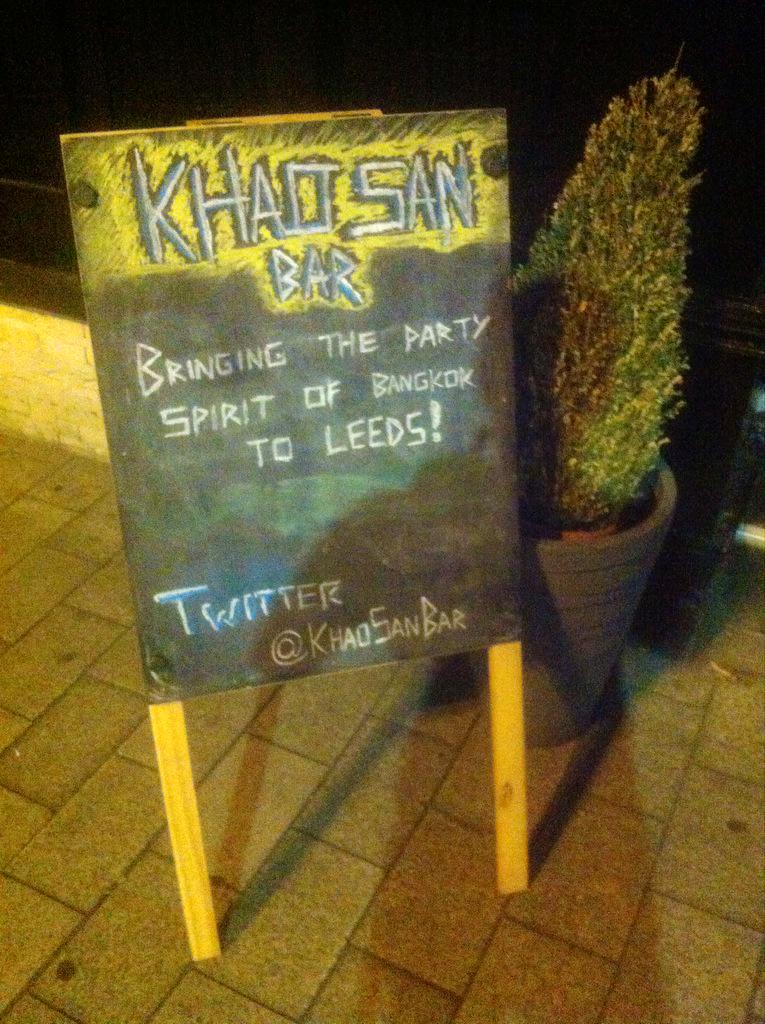 KHAO SAN
BAR
BRINGING THE PARTY
SPIRIT OF BANGKOK
TO LEEDS!
TWITTER
@KHAOSANBAR